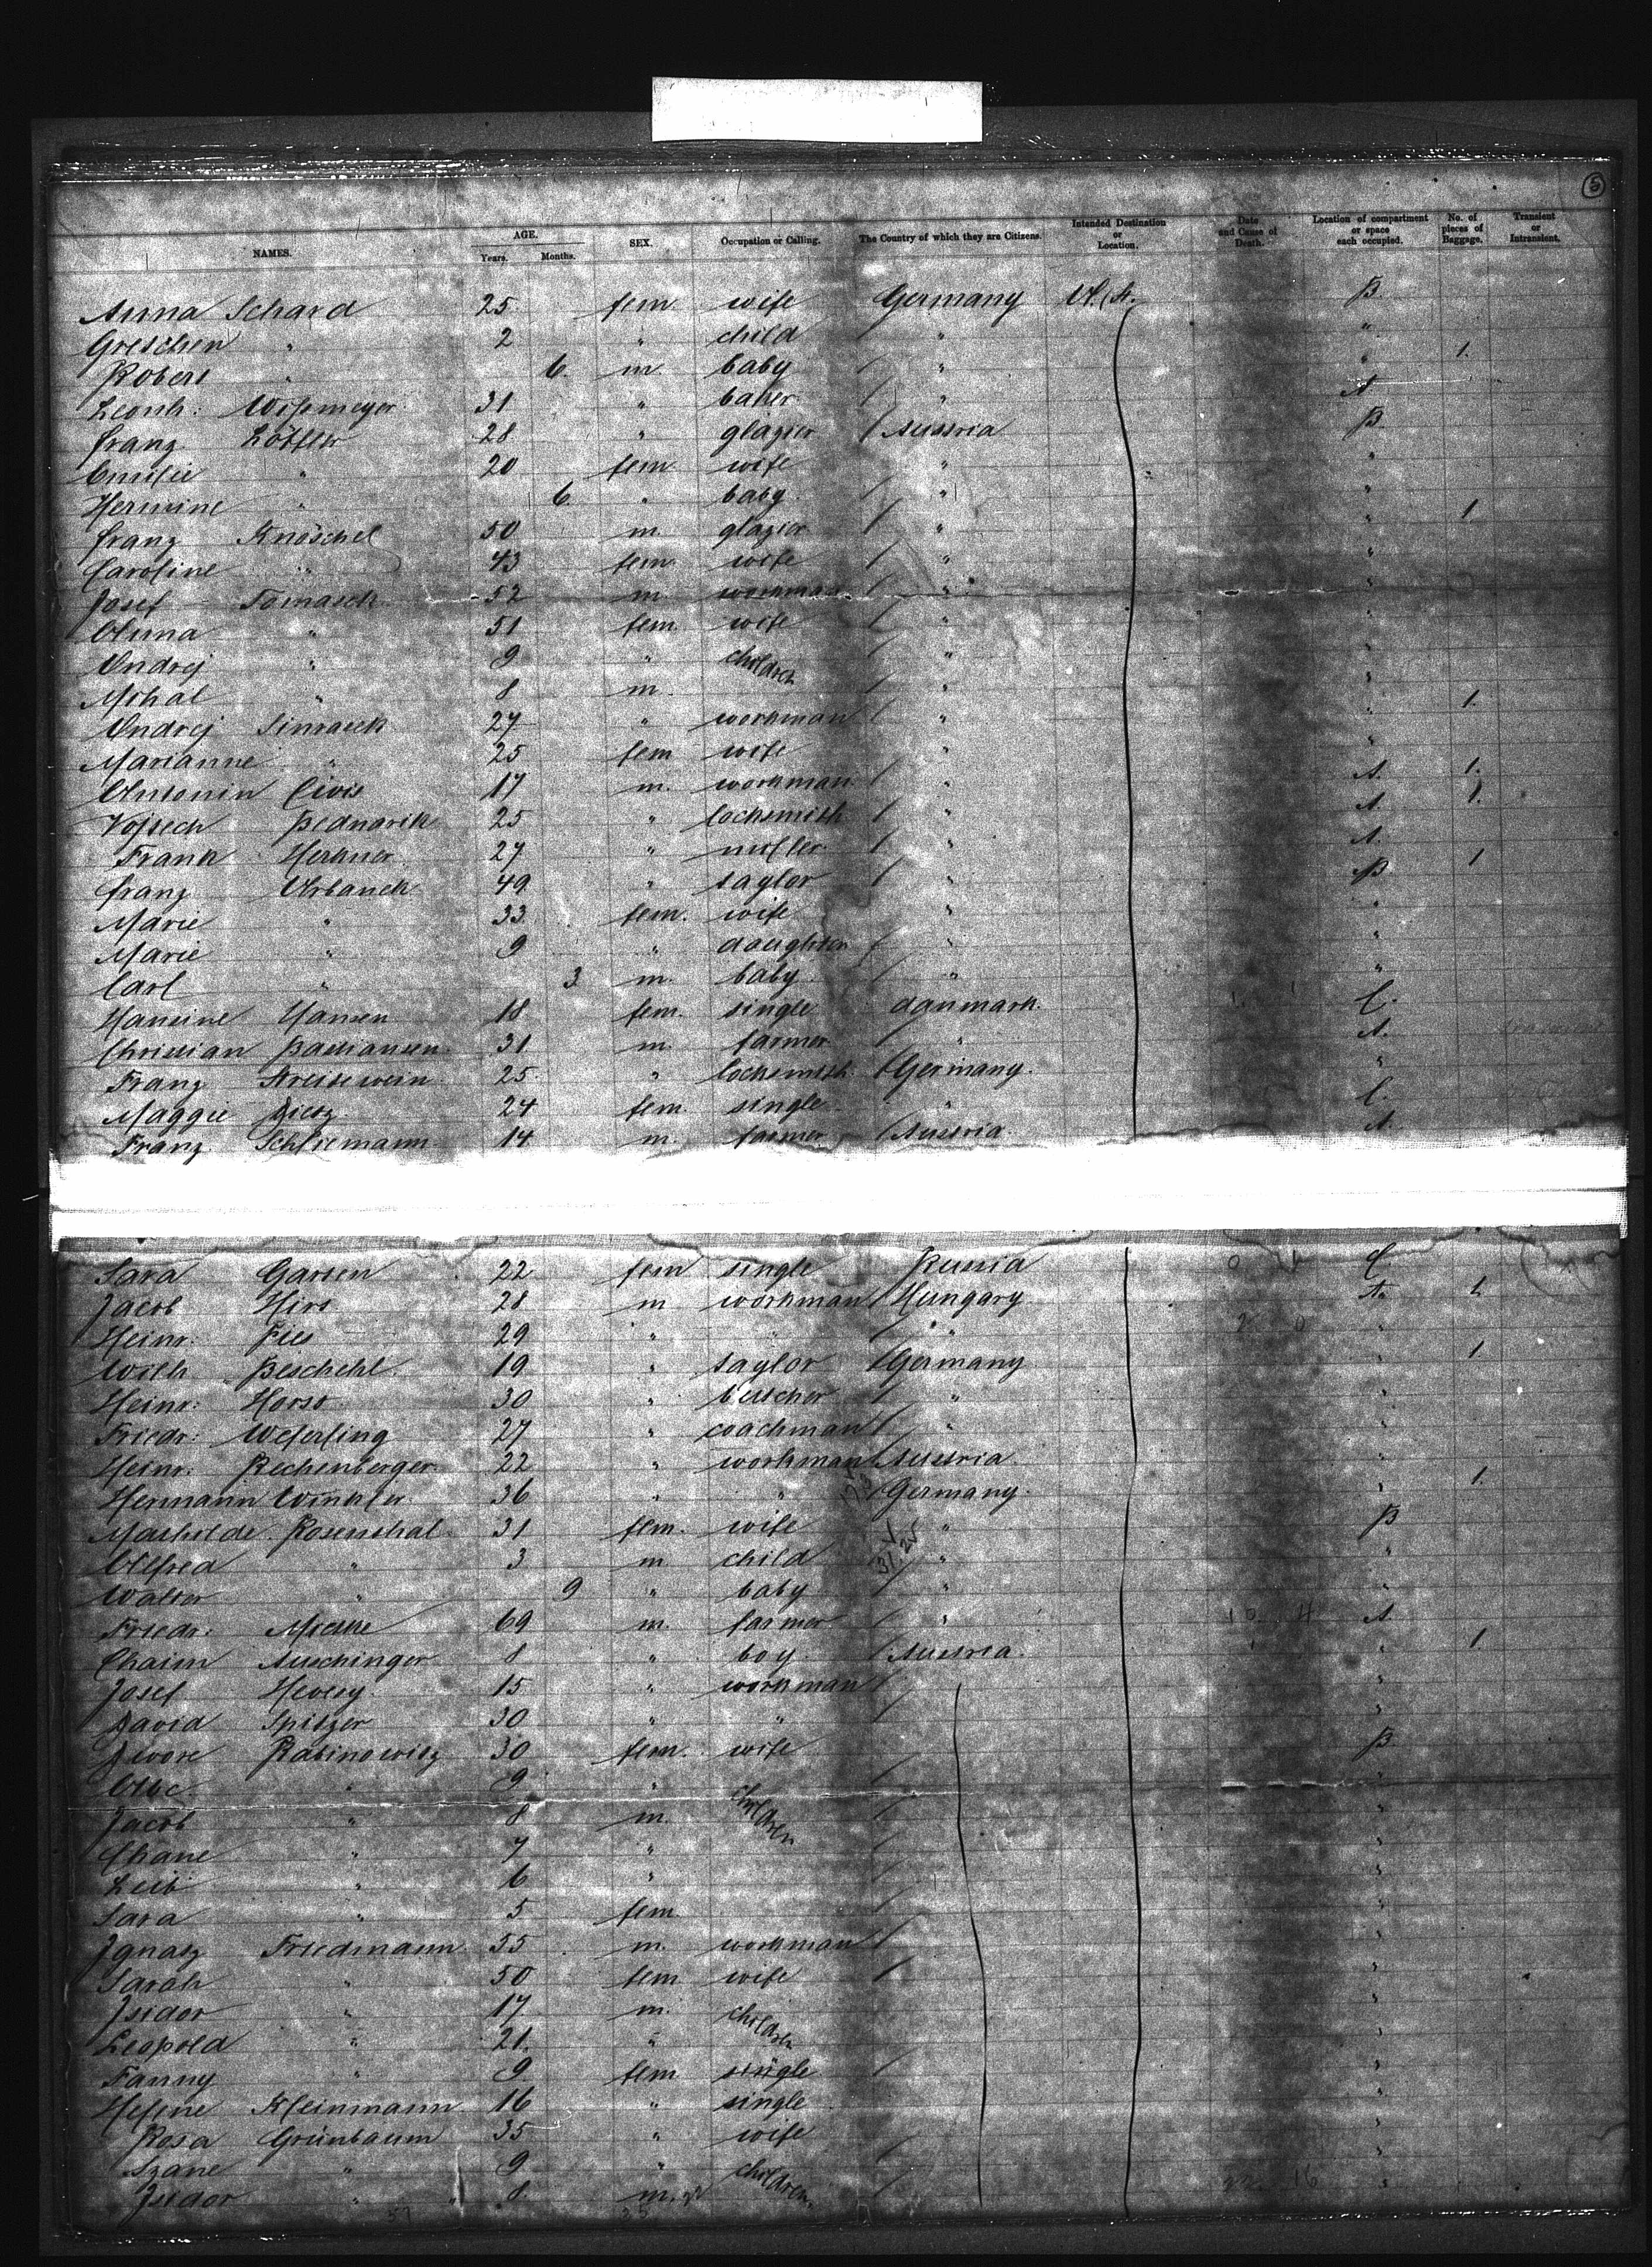 5
NAMES. AGE. Years. Months. SEX. Occupation or Calling. The Country of which they are Citizens. Intended Destination or Location. Date and Cause of Death. Location of compartment or space each occupied. No. of pieces of Baggage. Transient or Intransient.
Anna Schard 25 fem. wife Germany U.St. B
Gretchen " 2 " child " "
Robert " 6. m. baby " " 1.
Leonh: Wissmeyer 31 " baker " A
Franz Löffler 28 " glazier Austria B
Emilie " 20 fem wife " "
Hermine " 6. " baby " "
Franz Knöschel 50 m. glazier " " 1.
Caroline " 43 fem wife " "
Josef Tomasek 52 m. workman " "
Anna " 51 fem. wife " "
Andrej " 9 " children " "
Mihal " 8 m. " "
Andrej Simasek 27 " workman " " 1.
Marianne " 25 fem wife " "
Antonin Civis 17 m. workman " A. 1.
Vojtech Bednarik 25 " locksmith " A. 1.
Frank Herkner 27 " miller " A.
Franz Urbanek 49 " taylor " B 1
Marie " 33 fem. wife " "
Marie " 9 " daughter " "
Carl " 3 m. baby " "
Hansine Hansen 18 fem. single danmark. C.
Christian Bastiansen 31 m. farmer " A.
Franz Streisewein 25 " locksmith Germany. "
Maggie Dietz 24 fem. single " C.
Franz Schliemann 14 m. farmer Austria. A.
Sara Garten 22 fem single Russia C.
Jacob Hirs 28 m workman Hungary A. 1.
Heinr: Fies 29 " " " "
Wilh Beschehl. 19 " taylor Germany " 1
Heinr: Horst 30 " butcher " "
Friedr: Weferling 27 " coachman " "
Heinr: Rechenberger 22 " workman Austria "
Hermann Winkler 36 " " Germany. " 1.
Mathilde Rosenthal 31 fem. wife " B
Alfred " 3 m. child " "
Walter " 9 " baby " "
Friedr: Mielke 69 m. farmer " A.
Chaim Auschinger 8 " boy Austria. " 1
Josef Hevesy 15 " workman "
David Spitzer 30 " " "
Dwore Rabinowitz 30 fem. wife B
" 9 " children "
Jacob " 8 m. "
Chane " 7 " "
Leib " 6 " "
Sara " 5 fem. "
Ignatz Friedmann 55 m. workman "
Sarah " 50 fem wife "
Isidor " 17 m. children "
Leopold " 21. " "
Fanny " 9 fem single "
Helene Kleinmann 16 " single "
Rosa Grünbaum 35 " wife "
Szane " 9 " children "
Isidor " 8 m. "